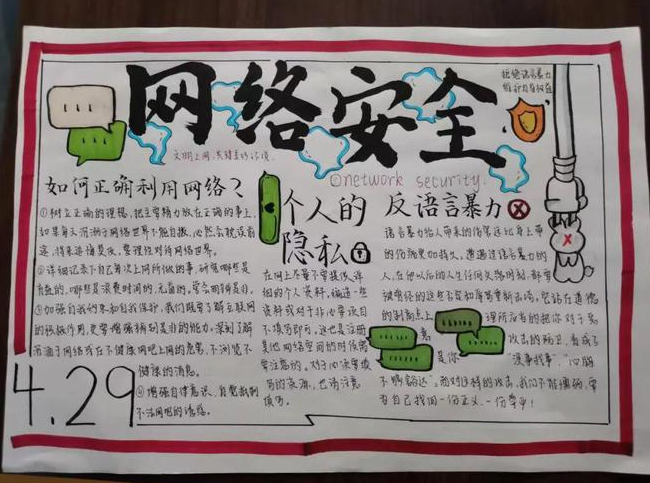 网络安全
拒绝语言暴力
维护自身权益
文明上网共建美好环境
network security.
如何正确利用网络？
①树立正确的理想，把主要精力放在正确的事上，
如果每天沉溺于网络世界不能自拔，必然会耽误前
途，将来追悔莫及，要理性对待网络世界。
②详细记录下自己每次上网所做的事，研究哪些是
有益的，哪些是浪费时间的，无益的，学会明辨是非。
③加强自我约束和自我保护，我们既要了解互联网
的积极作用，更要增强辨别是非的能力，深刻了解
沉溺于网络或在不健康网吧上网的危害，不浏览不
健康的消息。
④增强自律意识，自觉抵制
不法网吧的诱惑。
4.29
个人的
隐私
在网上尽量不要提供详
细的个人资料，编造一些
资料或对于非必要项目
不填写即可，这也是注册
其他网络空间的时候需
要注意的，对于必须要填
写的资源，也请注意
填写。
反语言暴力
语言暴力给人带来的伤害远比身上带
的伤痛更加持久，遭遇过语言暴力的
人，在他以后的人生任何关键时刻，都
被曾经的这些否定和辱骂重新击垮，它站在道德
的制高点上
理所应当的把你对于恶
意
攻击的防卫，看成了
是你
“没事找事”，“心胸
不够豁达”，面对这样的攻击，我们不能懦弱，要
为自己找回一份正义，一份尊严！